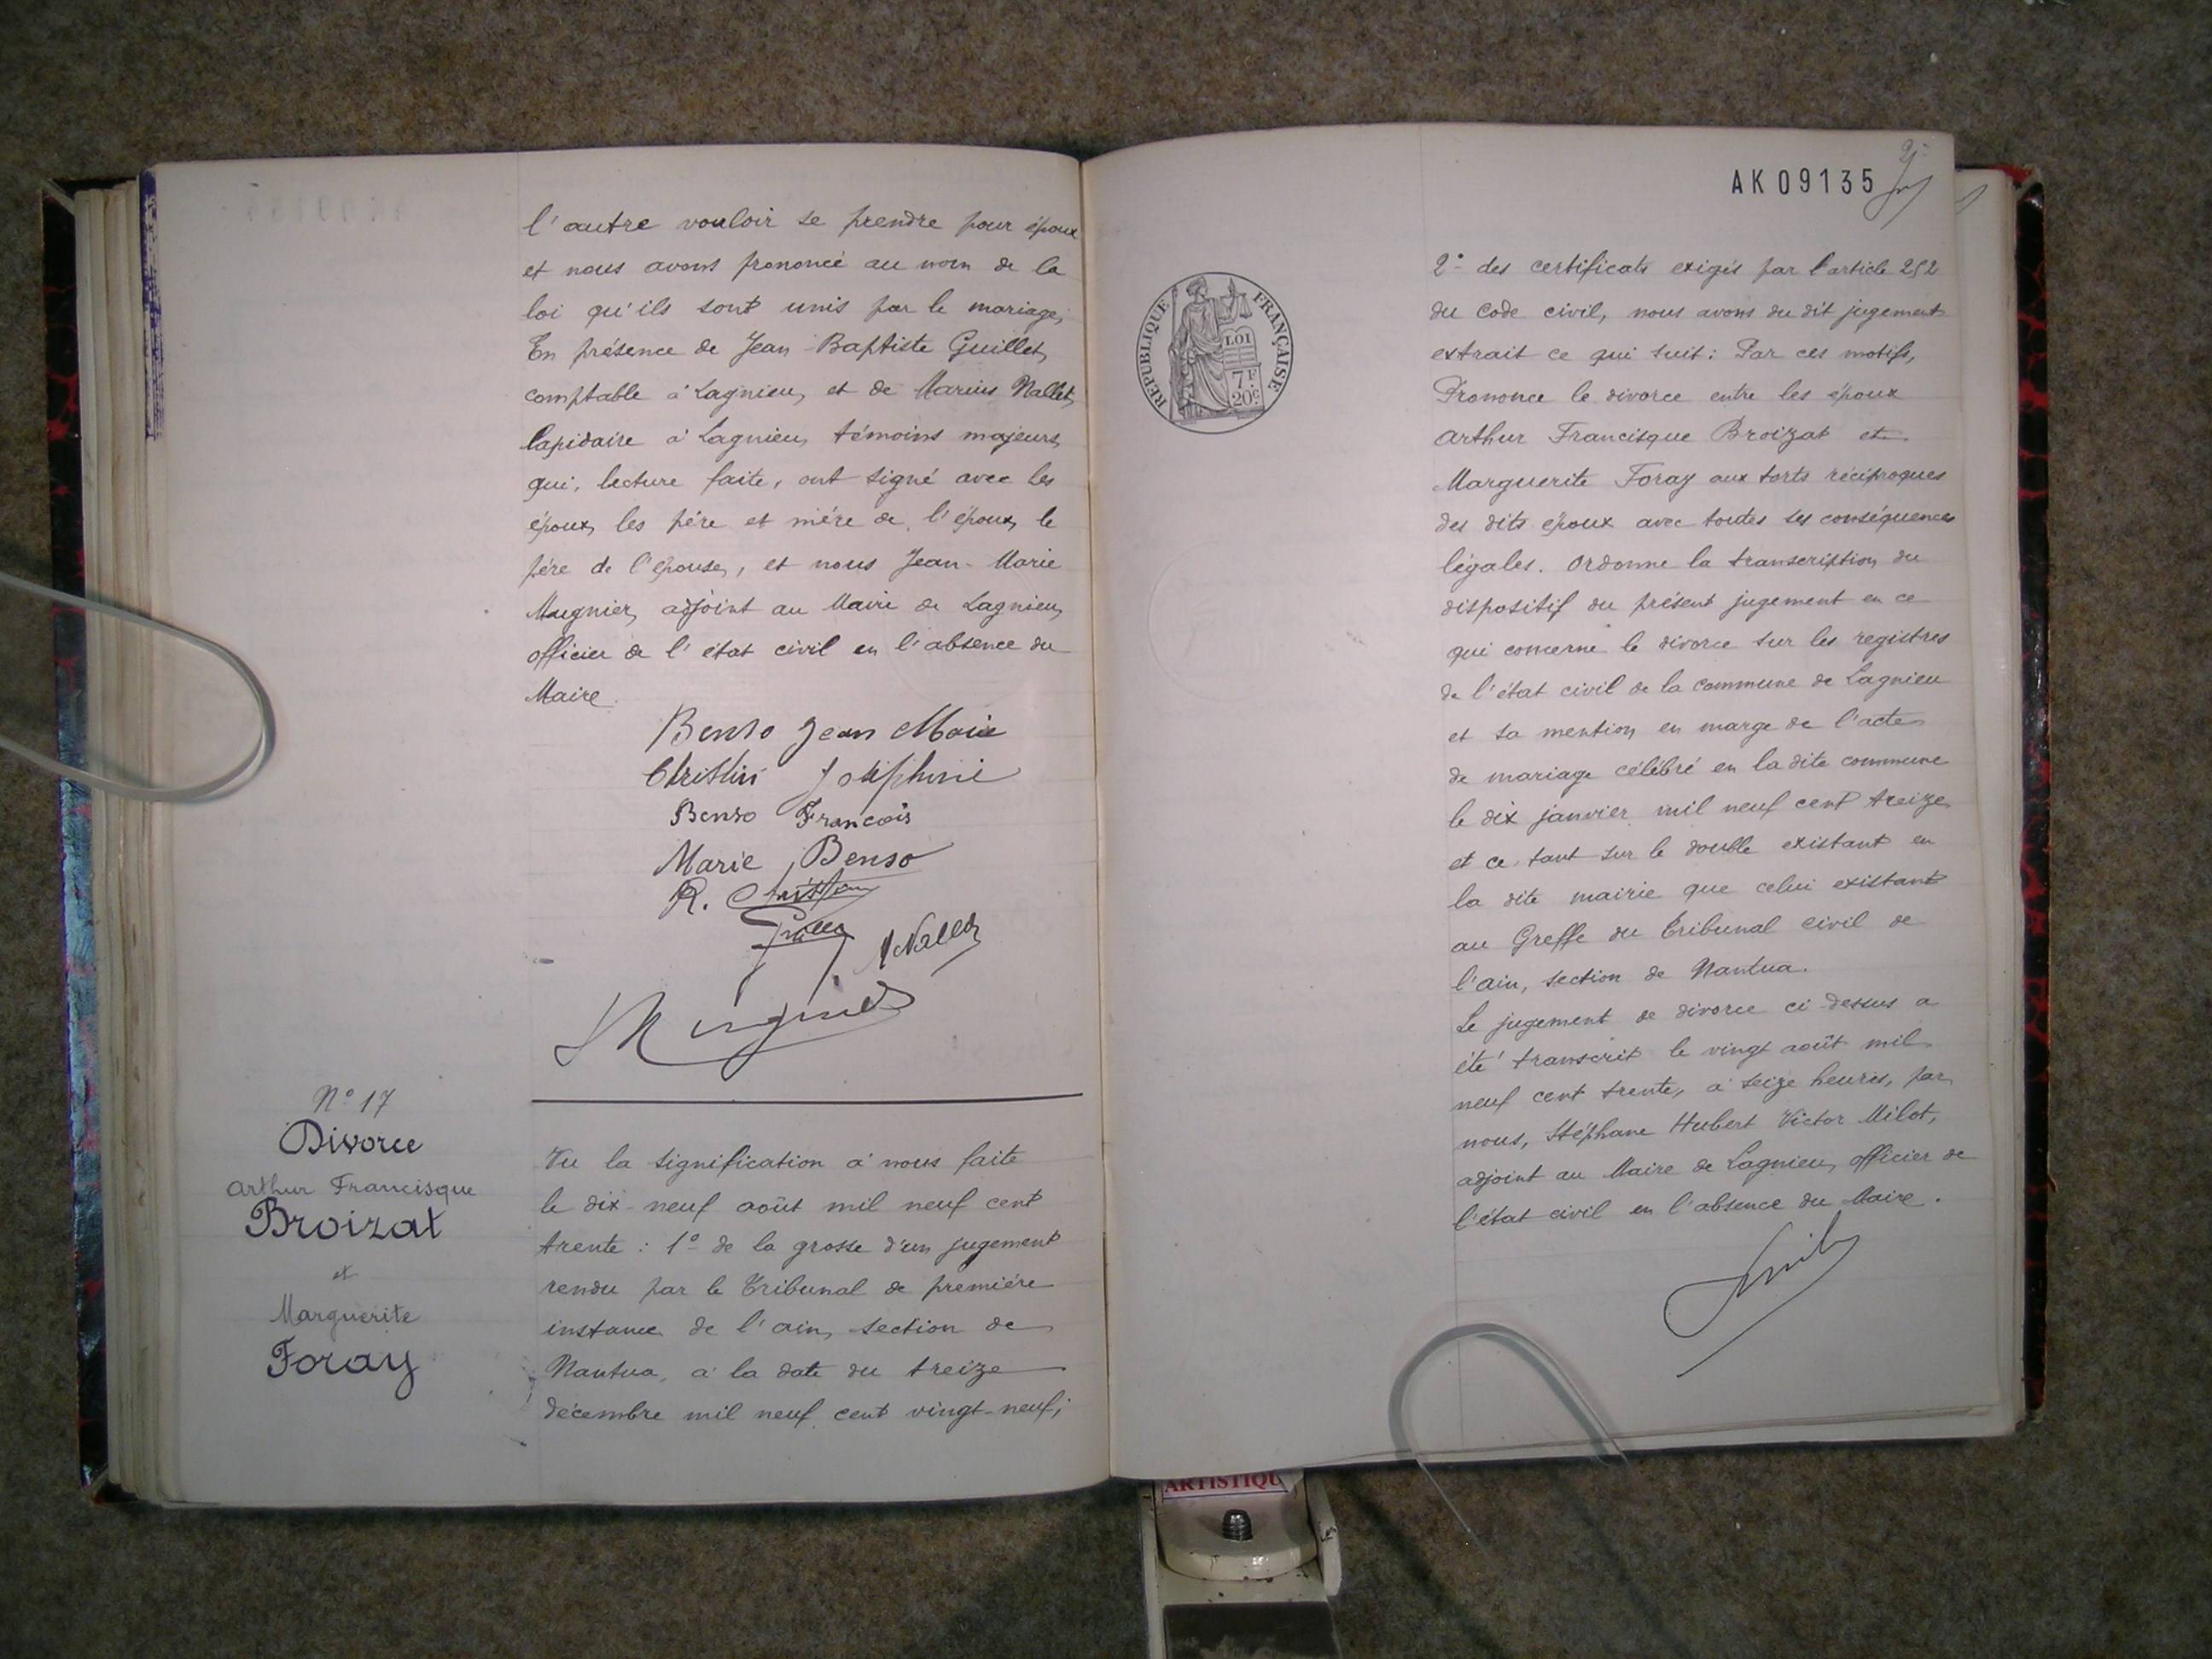 l'autre vouloir se prendre pour époux
et nous avons prononcé au nom de la
loi qu'ils sont unis par le mariage,
En présence de Jean-Baptiste Guillet,
comptable à Lagnieu, et de Marius Nallet,
lapidaire à Lagnieu, témoins majeurs,
qui, lecture faite, ont signé avec les
époux, les père et mère de l'époux, le
père de l'épouse, et nous Jean-Marie
Mugnier, adjoint au Maire de Lagnieu,
officier de l'état civil en l'absence du
Maire.
Benso Jean Marie
Christin Joséphine
Benso François
Marie Benso
R. Christin
M Nallet
Mugnier
N° 17
Divorce
Arthur Francisque
Broizat
et
Marguerite
Foray
Vu la signification à nous faite
le dix-neuf août mil neuf cent
trente : 1° de la grosse d'un jugement
rendu par le Tribunal de première
instance de l'ain, section de
Nantua, à la date du treize
décembre mil neuf cent vingt-neuf;
AK09135
RÉPUBLIQUE FRANÇAISE
LOI
7F
20c
2° des certificats exigés par l'article 252
du Code civil, nous avons du dit jugement
extrait ce qui suit : Par ces motifs,
Prononce le divorce entre les époux
Arthur Francisque Broizat et
Marguerite Foray aux torts réciproques
des dits époux avec toutes ses conséquences
légales. Ordonne la transcription du
dispositif du présent jugement en ce
qui concerne le divorce sur les registres
de l'état civil de la commune de Lagnieu
et sa mention en marge de l'acte
de mariage célébré en la dite commune
le dix janvier mil neuf cent treize
et ce, tant sur le double existant en
la dite mairie que celui existant
au Greffe du Tribunal civil de
l'ain, section de Nantua.
Le jugement de divorce ci-dessus a
été transcrit le vingt août mil
neuf cent trente, à seize heures, par
nous, Stéphane Hubert Victor Milot,
adjoint au Maire de Lagnieu, officier de
l'état civil en l'absence du Maire.
ARTISTIQU